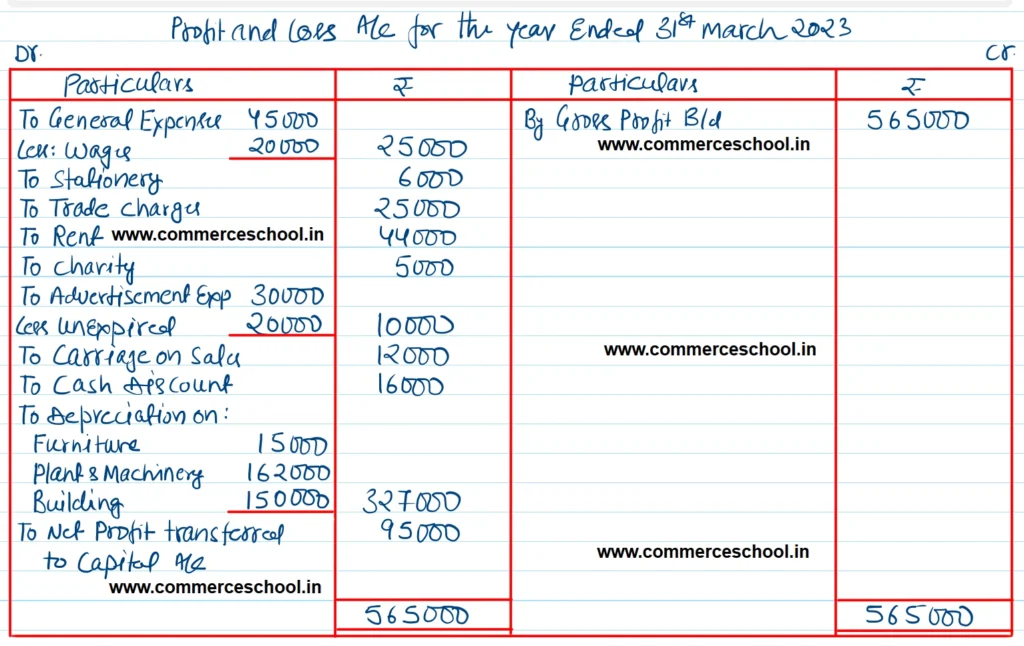 Profit and Loss A/c for the year Ended 31st March 2023
Dr. Cr.
Particulars ₹ Particulars ₹
To General Expenses 45000 By Gross Profit B/d 565000
Less: Wages 20000 25000 www.commerceschool.in
To Stationery 6000
To Trade Charges 25000
To Rent www.commerceschool.in 44000
To Charity 5000
To Advertisement Exp 30000
Less Unexpired 20000 10000
To Carriage on Sales 12000 www.commerceschool.in
To Cash Discount 16000
To Depreciation on:
Furniture 15000
Plant & Machinery 162000
Building 150000 327000
To Net Profit transferred 95000
to Capital A/c www.commerceschool.in
www.commerceschool.in
565000 565000